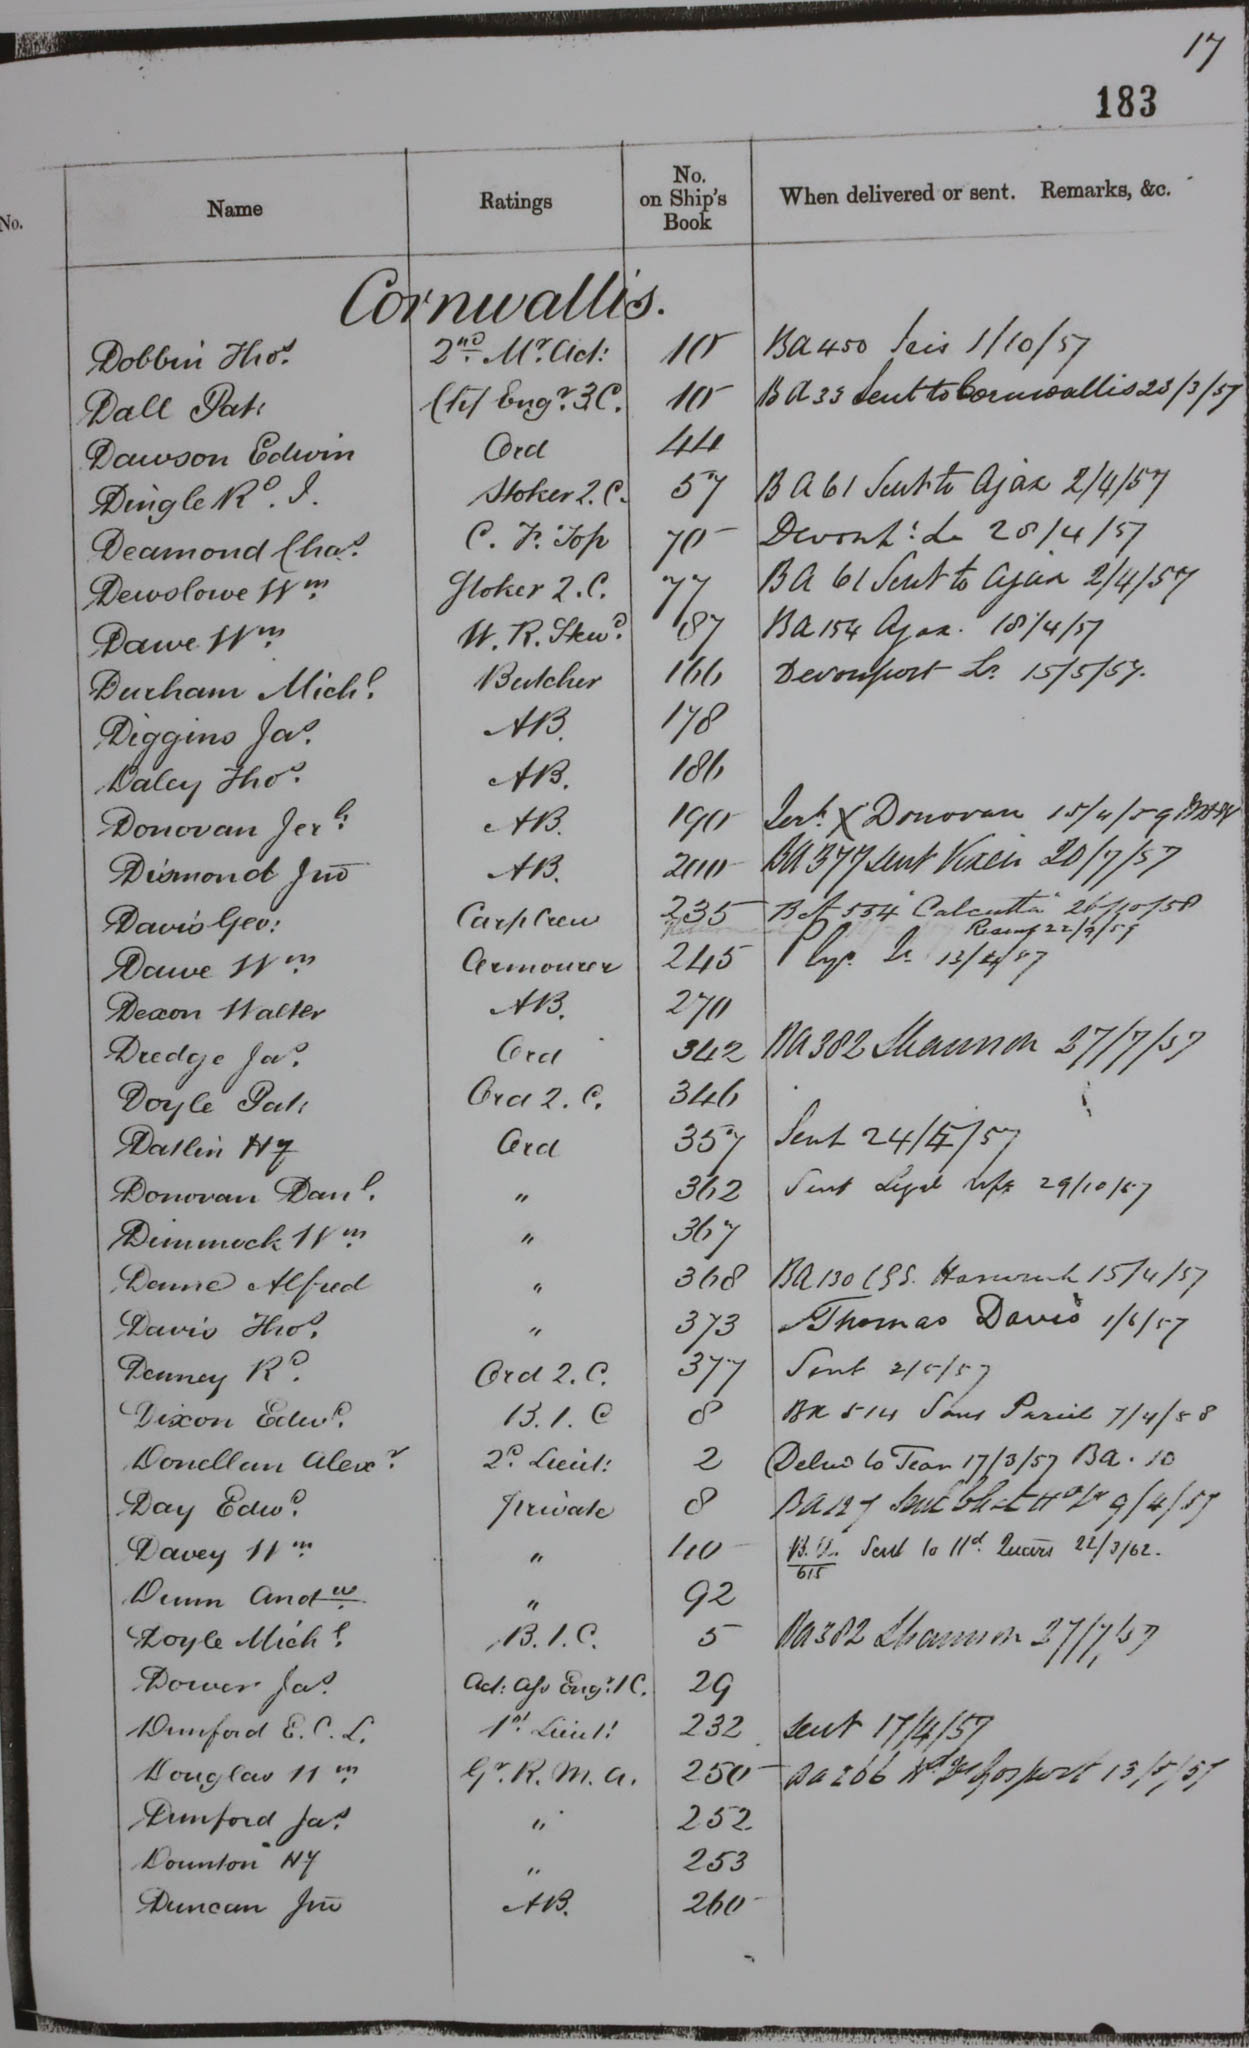 17
183
No. Name Ratings No. on Ship's Book When delivered or sent. Remarks, &c.
Cornwallis.
Dobbin Thos. 2nd Mr. Act: 10 BA 450 Iris 1/10/57
Dall Pat: Engr. 3.C. 10 BA 33 Sent to Cornwallis 23/3/57
Dawson Edwin Ord 44
Dingle Rd. J. Stoker 2.C. 57 BA 61 Sent to Ajax 2/4/57
Deamond Chas. C. F. Top 70 28/4/57
Dewslowe Wm Stoker 2.C. 77 BA 61 Sent to Ajax 2/4/57
Dawe Wm W. R. Stewd. 87 BA 154 Ajax. 18/4/57
Durham Michl. Butcher 166 Devonport Lr. 15/5/57.
Diggins Jas. AB. 178
Daley Thos. AB. 186
Donovan Jerh: AB. 190 Jerh. X Donovan 15/4/59
Dismond Jno AB. 200 BA 377 sent Vixen 20/7/57
Davis Geo: Carp Crew 235 BA 554 "Calcutta" 26/10/58
22/9/59
Dawe Wm Armourer 245 13/4/57
Dexon Walter AB. 270
Dredge Jas. Ord 342 BA 382 Shannon 27/7/57
Doyle Pat: Ord 2.C. 346
Datlin Hy Ord 357 Sent 24/4/57
Donovan Danl. " 362 Sent 29/10/57
Dimmock Wm " 367
Dame Alfred " 368 BA 130 15/4/57
Davis Thos. " 373 Thomas Davis 1/6/57
Denney Rd. Ord 2.C. 377 Sent 2/5/57
Dixon Edwd. B.1.C 8 BA 514 Sans Pareil 7/4/58
Donellan Alexr. 2d. Lieut: 2 Delivd to 17/3/57 BA. 10
Day Edwd. Private 8 BA 127 9/4/57
Davey Wm " 40 B.A. 615 Sent to Hd. Quars 22/3/62.
Dunn Andw " 92
Doyle Michl. B.1.C. 5 BA 382 Shannon 27/7/57
Dower Jas. Act: Ass Engr. 1C. 29
Dunford E. C. L. 1st Lieut: 232 sent 17/4/57
Douglas Wm Gr. R. M. A. 250 BA 266 Gosport 13/5/57
Dunford Jas. " 252
Dounton Hy " 253
Duncan Jno AB. 260